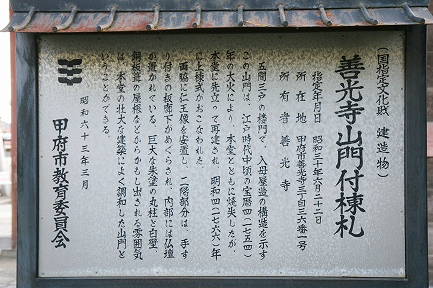 （国指定文化財　建造物）
善光寺山門付棟札
指定年月日　昭和三十年六月二十二日
所在地　甲府市善光寺三丁目三六番一号
所有者　善光寺
五間三戸の楼門で、入母屋造の構造を示す
この山門は、江戸時代中頃の宝暦四（一七五四）
年の大火により、本堂とともに焼失したが、
本堂に先立って再建され、明和四（一七六七）年
に上棟式がおこなわれた。
両脇に仁王像を安置し、二階部分は、手す
り付きの板廊下がめぐらされ、内部には仏壇
が置かれている。巨大な朱塗の丸柱と白壁、
銅板葺の屋根などからかもし出される雰囲気
は、本堂の壮大な建築によく調和した山門と
いうことができる。
昭和六十三年三月
甲府市教育委員会